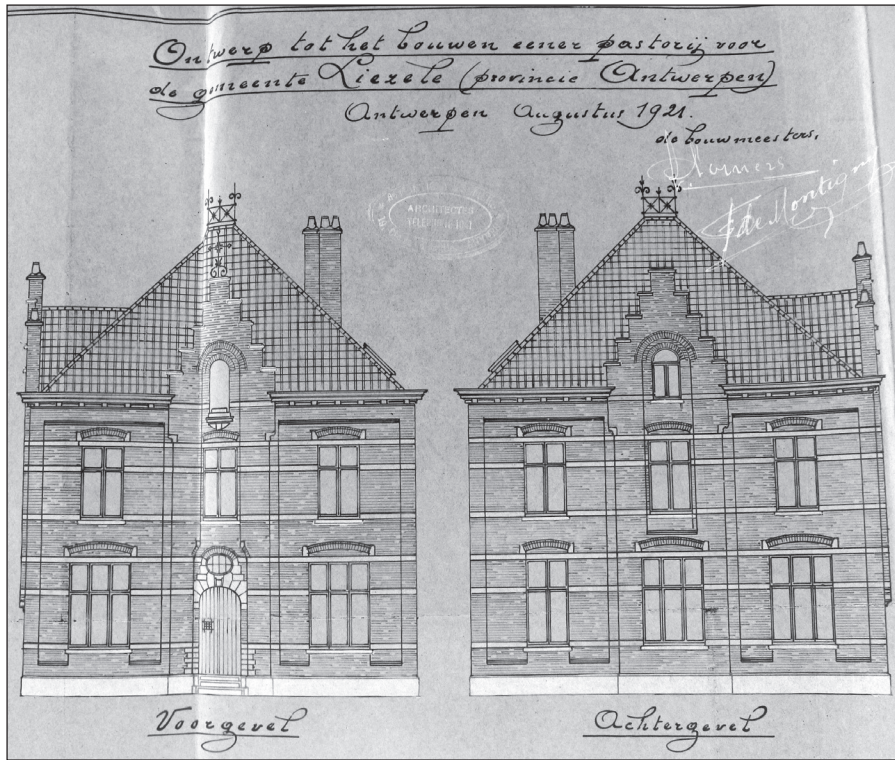 Ontwerp tot het bouwen eener pastorij voor
de gemeente Liezele (provincie Antwerpen)
Antwerpen Augustus 1921.
de bouwmeesters,
F de Montigny
ARCHITECTES
Voorgevel
Achtergevel